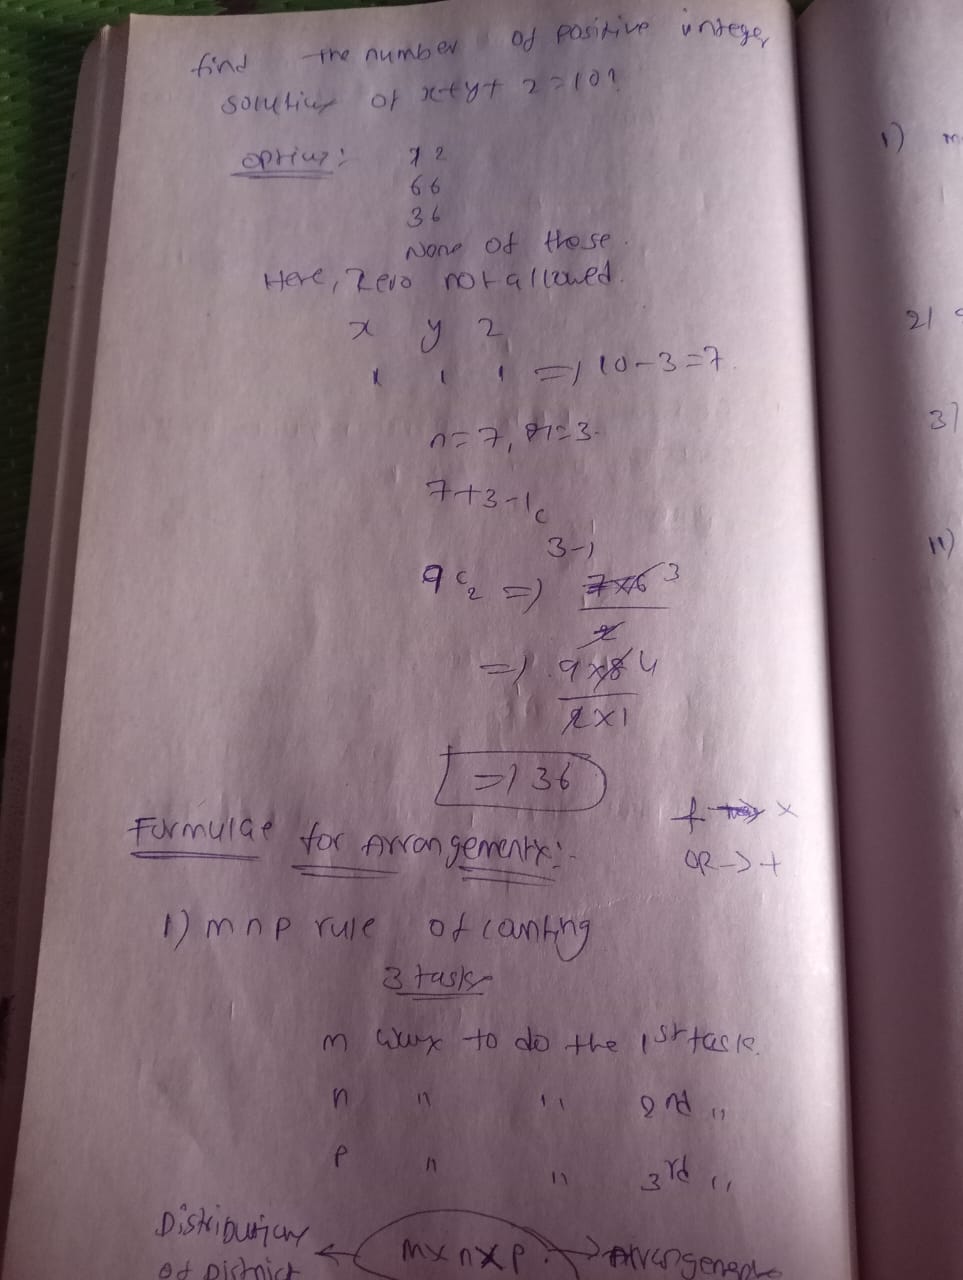 find the number of positive integer
solution of x+y+z=10?
option:
72
66
36
None of these.
Here, Zero not allowed.
x y z
1 1 1 => 10-3=7.
n=7, r=3.
7+3-1c
3-1
9c2 => 7x6 3
2
=> 9x8 4
2x1
=> 36
Formulae for Arrangements:-
x
OR -> +
1) m n p rule of counting
3 tasks
m ways to do the 1st task.
n " " 2nd "
p " " 3rd "
Distribution
of District
mxnxp
Arrangements
1) m
2)
3)